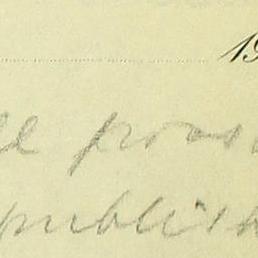 19
ll pros
publish